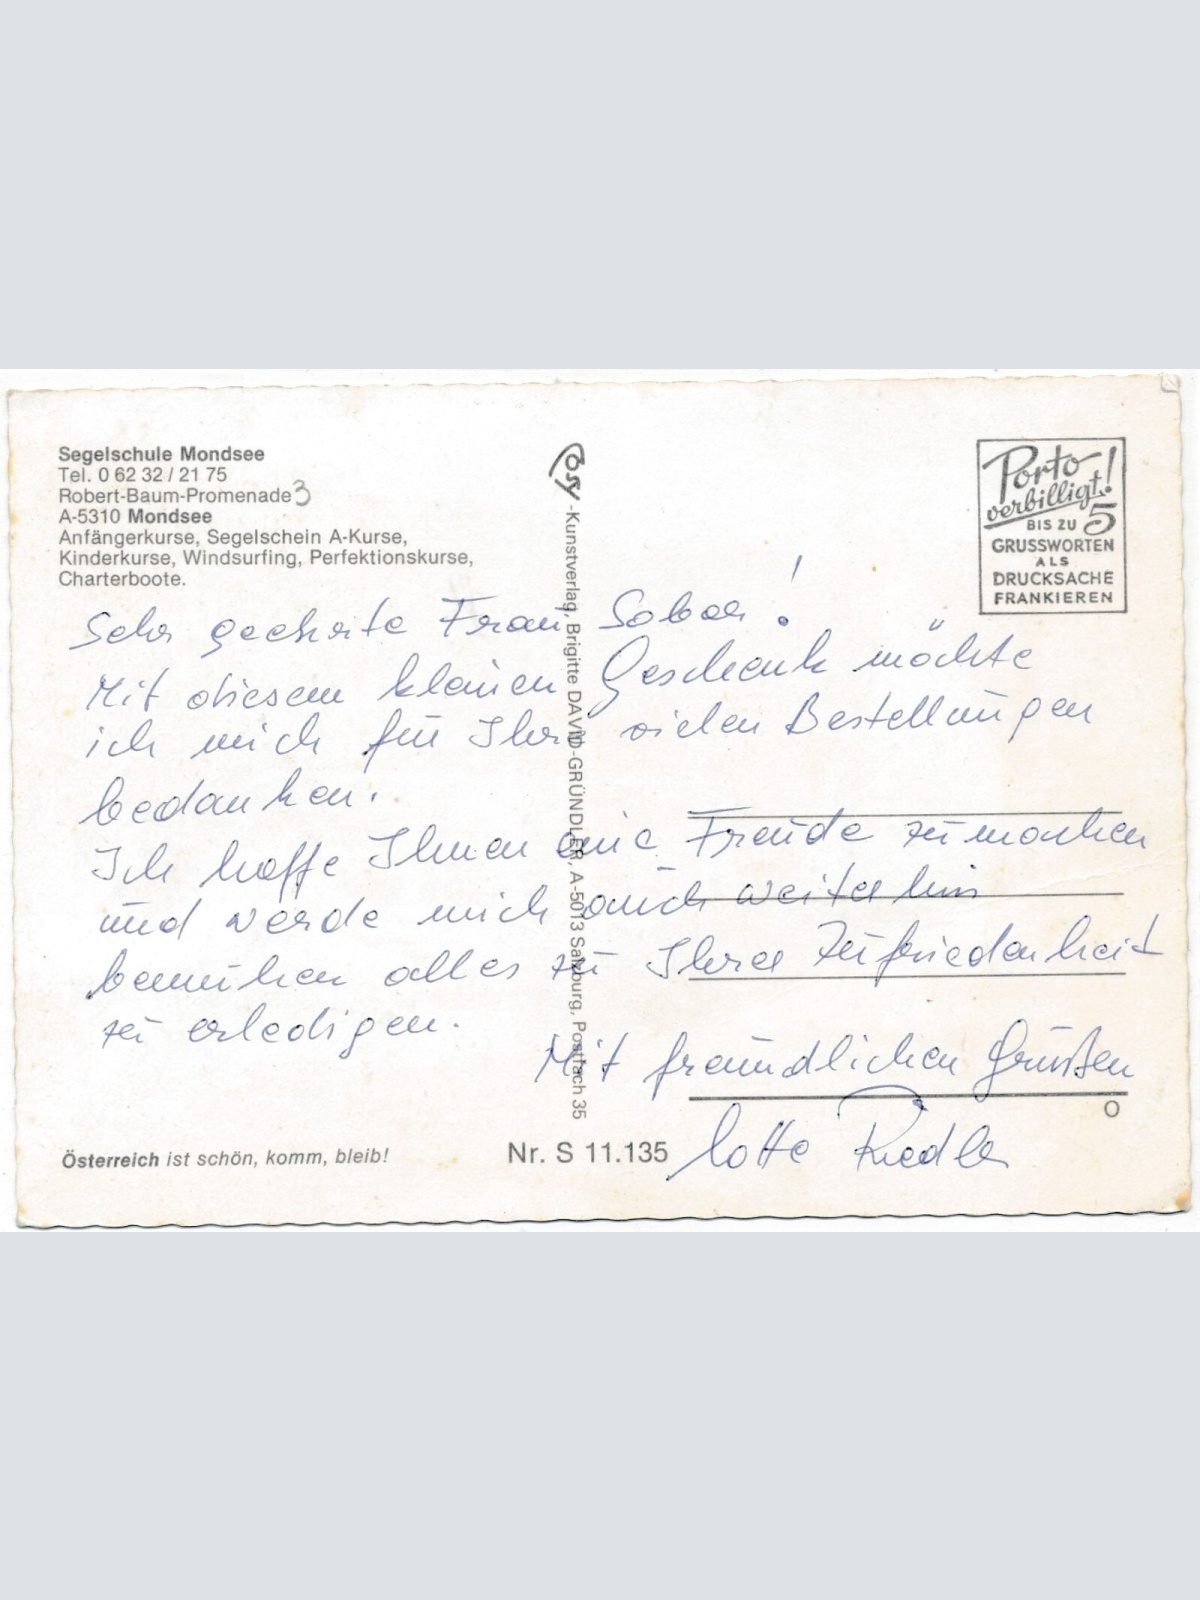 Segelschule Mondsee
Tel. 0 62 32 / 21 75
Robert-Baum-Promenade 3
A-5310 Mondsee
Anfängerkurse, Segelschein A-Kurse,
Kinderkurse, Windsurfing, Perfektionskurse,
Charterboote.
Porto
verbilligt!
BIS ZU 5
GRUSSWORTEN
ALS
DRUCKSACHE
FRANKIEREN
Cosy-Kunstverlag, Brigitte DAVID-GRÜNDLER, A-5013 Salzburg, Postfach 35
Sehr geehrte Frau !
Mit diesem kleinen Geschenk möchte
ich mich für Ihre vielen Bestellungen
bedanken.
Ich hoffe Ihnen eine Freude zu machen
und werde mich auch weiterhin
bemühen alles zu Ihrer Zufriedenheit
zu erledigen.
Mit freundlichen Grüßen
Lotte Riedler
O
Österreich ist schön, komm, bleib!
Nr. S 11.135